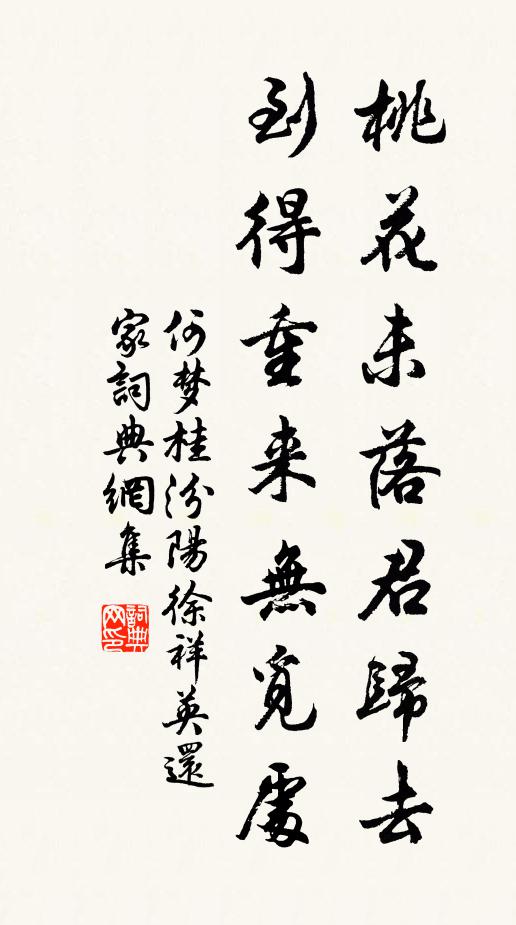 桃花未落君歸去
到得重来無覓處
何梦桂汾陽徐祥英還
家詞典網集
詞典
网印